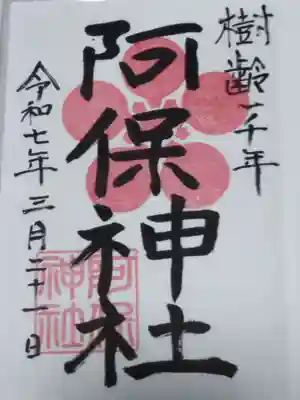 樹齢一千年
阿保神社
令和七年三月二十一日
阿保神社